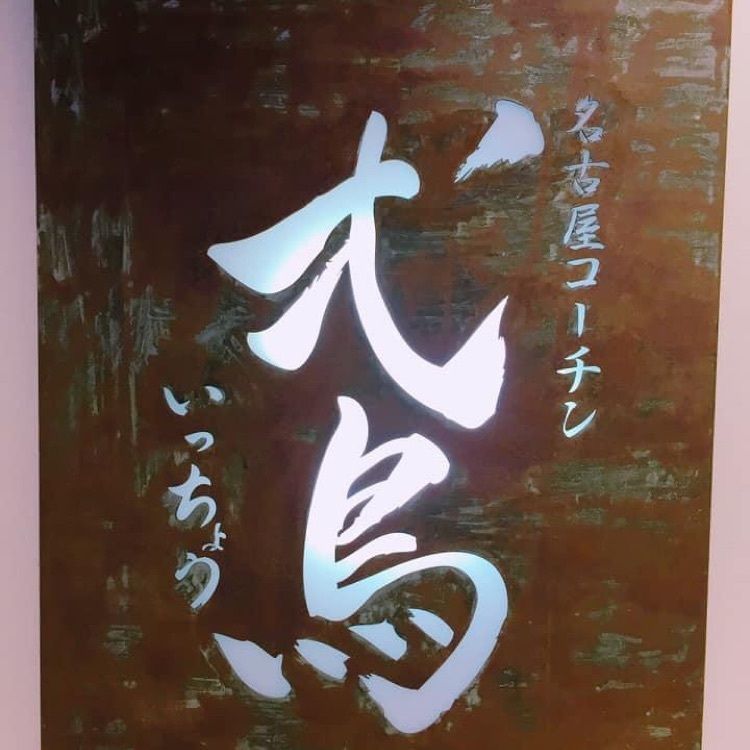 名古屋コーチン
弌鳥
いっちょう